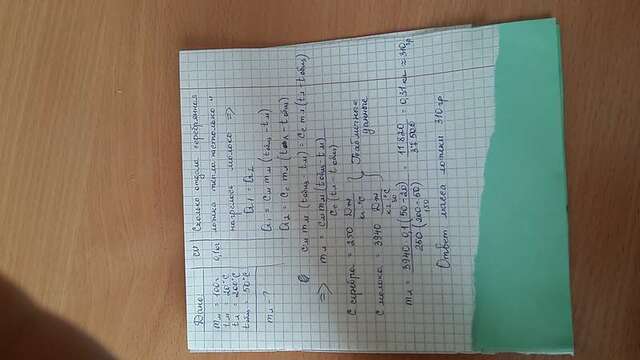 Дано:
mм = 100г
tм = 20°C
tл = 200°C
tобщ = 50°C
mл - ?
СИ
0,1кг
Сколько отдала серебрянная
ложка тепла настолько и
нагрелось молоко =>
Q1 = Q2
Q1 = cм mм (tобщ - tм)
Q2 = Cc mл (tл - tобщ)
cм mм (tобщ - tм) = Cc mл (tл - tобщ)
=> mл = cм mм (tобщ - tм) / Cc (tл - tобщ)
C серебра = 250 Дж / кг °C
C молока = 3940 Дж / кг °C
Табличные
данные
mл = 3940 · 0,1 (50 - 20) / 250 (200 - 50) = 11820 / 37500 = 0,31 кг ≈ 310 гр
30
150
Ответ масса ложки 310 гр